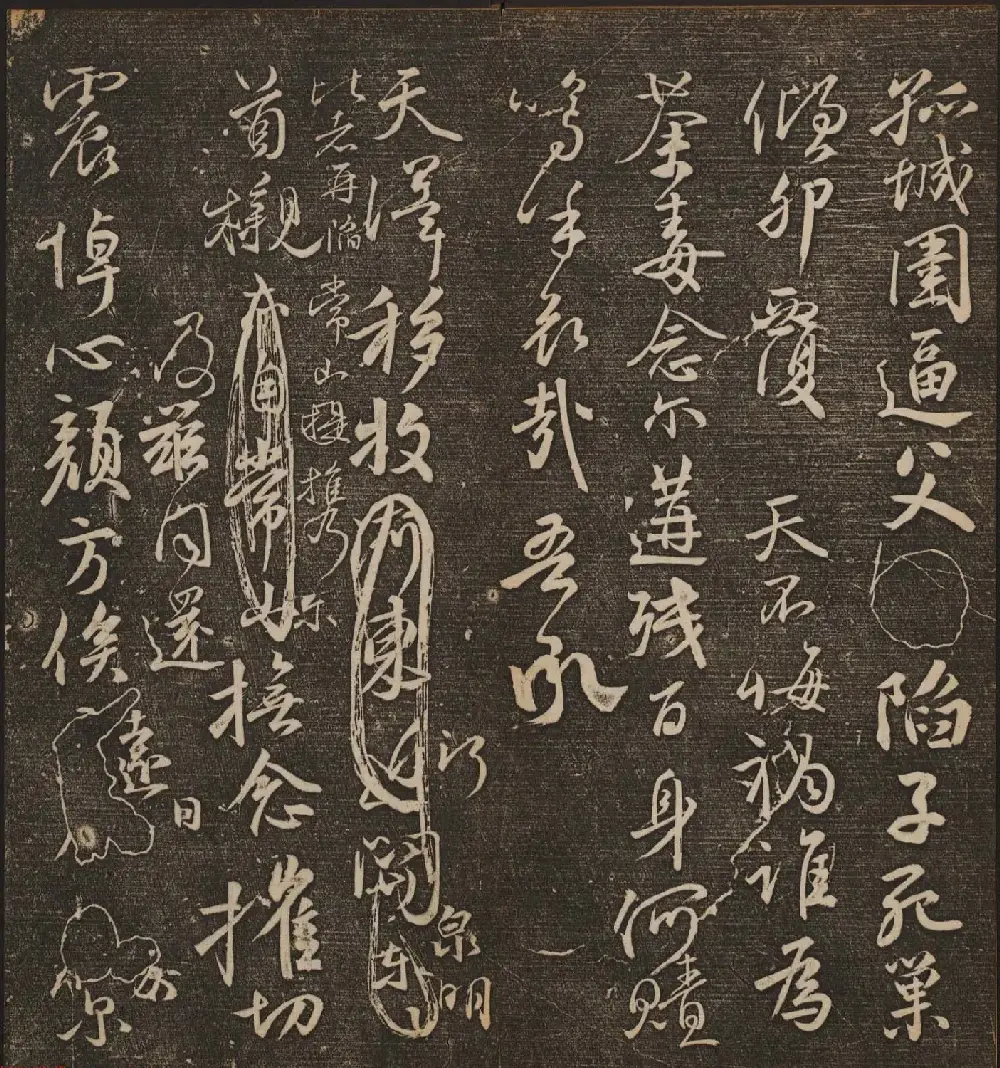 孤城圍逼父陷子死巢
傾卵覆天不悔禍誰為
荼毒念尔遘残百身何贖
嗚乎哀哉吾承
天澤移牧河東近河關泉明
比者再陷常山提攜尔
首櫬亦自常山及兹同還撫念摧切
震悼心顏方俟遠日